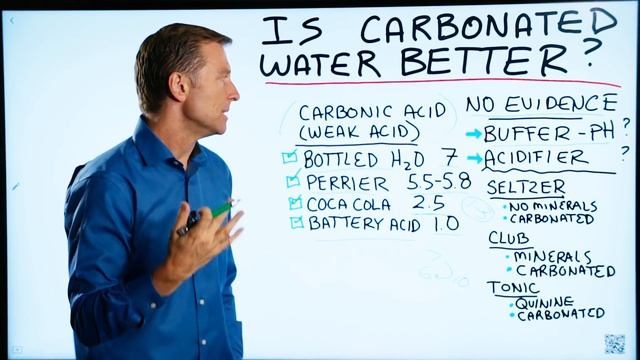 IS CARBONATED
WATER BETTER?
CARBONIC ACID
(WEAK ACID)
BOTTLED H2O 7
PERRIER 5.5-5.8
COCA COLA 2.5
BATTERY ACID 1.0
NO EVIDENCE
→ BUFFER-PH ?
→ ACIDIFIER ?
SELTZER
• NO MINERALS
• CARBONATED
CLUB
• MINERALS
• CARBONATED
TONIC
• QUININE
• CARBONATED